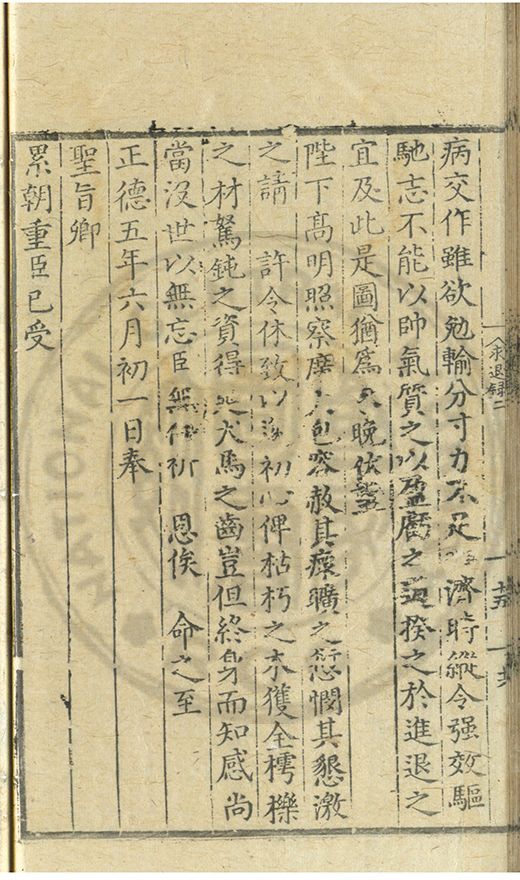 求退錄二
病交作雖欲勉輸分寸力不足濟時縱令强效驅
馳志不能以帥氣質之以盈虧之道揆之於進退之
宜及此是圖猶爲未晚伏望
陛下高明照察廣大包容赦其瘝曠之愆憫其懇激
之請 許令休致以遂初心俾枯朽之木獲全樗櫟
之材駑鈍之資得延犬馬之齒豈但終身而知感尚
當沒世以無忘臣無任祈 恩俟 命之至
正德五年六月初一日奉
聖旨卿
累朝重臣已受